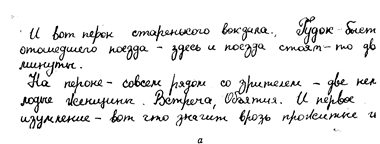 И вот перон старенького вокзала. Гудок быст
отошедшего поезда - здесь и поезда стоят - то две
минуты.
На пероне - совсем рядом со зрителем - две нем
лодые женщины. Встреча, Объятия. И первое
изумление - вот что значит врозь прожитые и
а